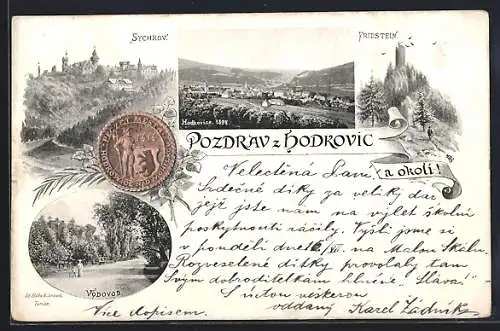 SYCHROV.
FRIDSTEIN.
Hodkovice. 1898.
POZDRAV z HODKOVIC
a okolí!
Velectěná Paní
Srdečné díky za veliký dar
jejž jste nám na výlet školní
poskytnouti ráčily. Vyšli jsme si
v pondělí dne VII na Malou Skálu.
Rozveselené dítky provolaly tam
Svým dobroditelkám hlučné „Sláva!“
S úctou veškerou
oddaný Karel Žádník
Více dopisem.
VODOVOD